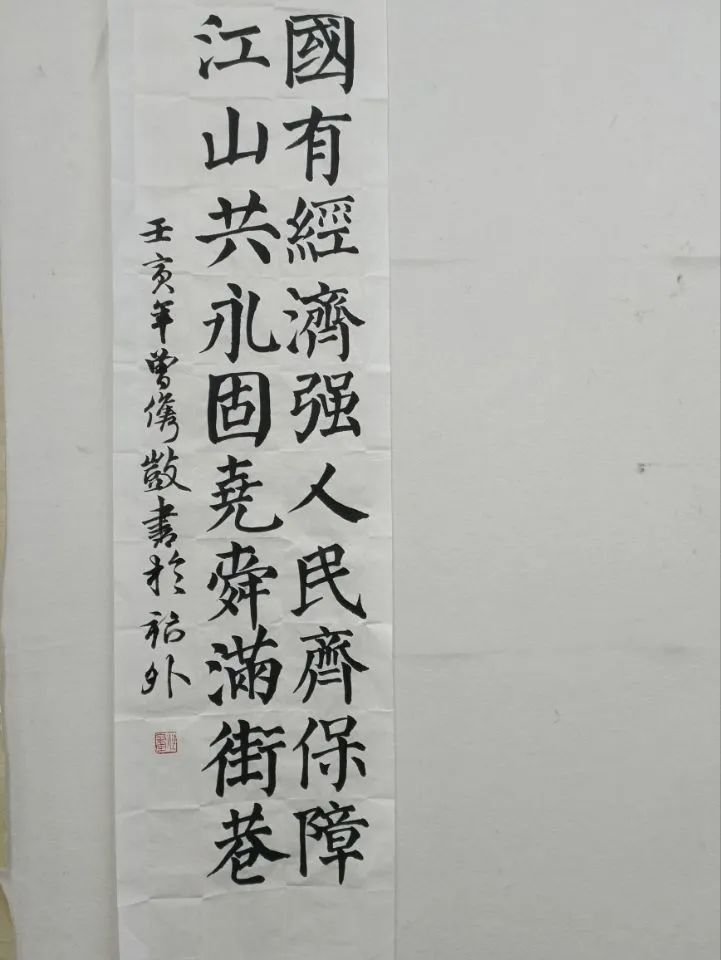 國有經濟强人民齊保障
江山共永固堯舜滿街巷
壬寅年曾儁敳書於祒外